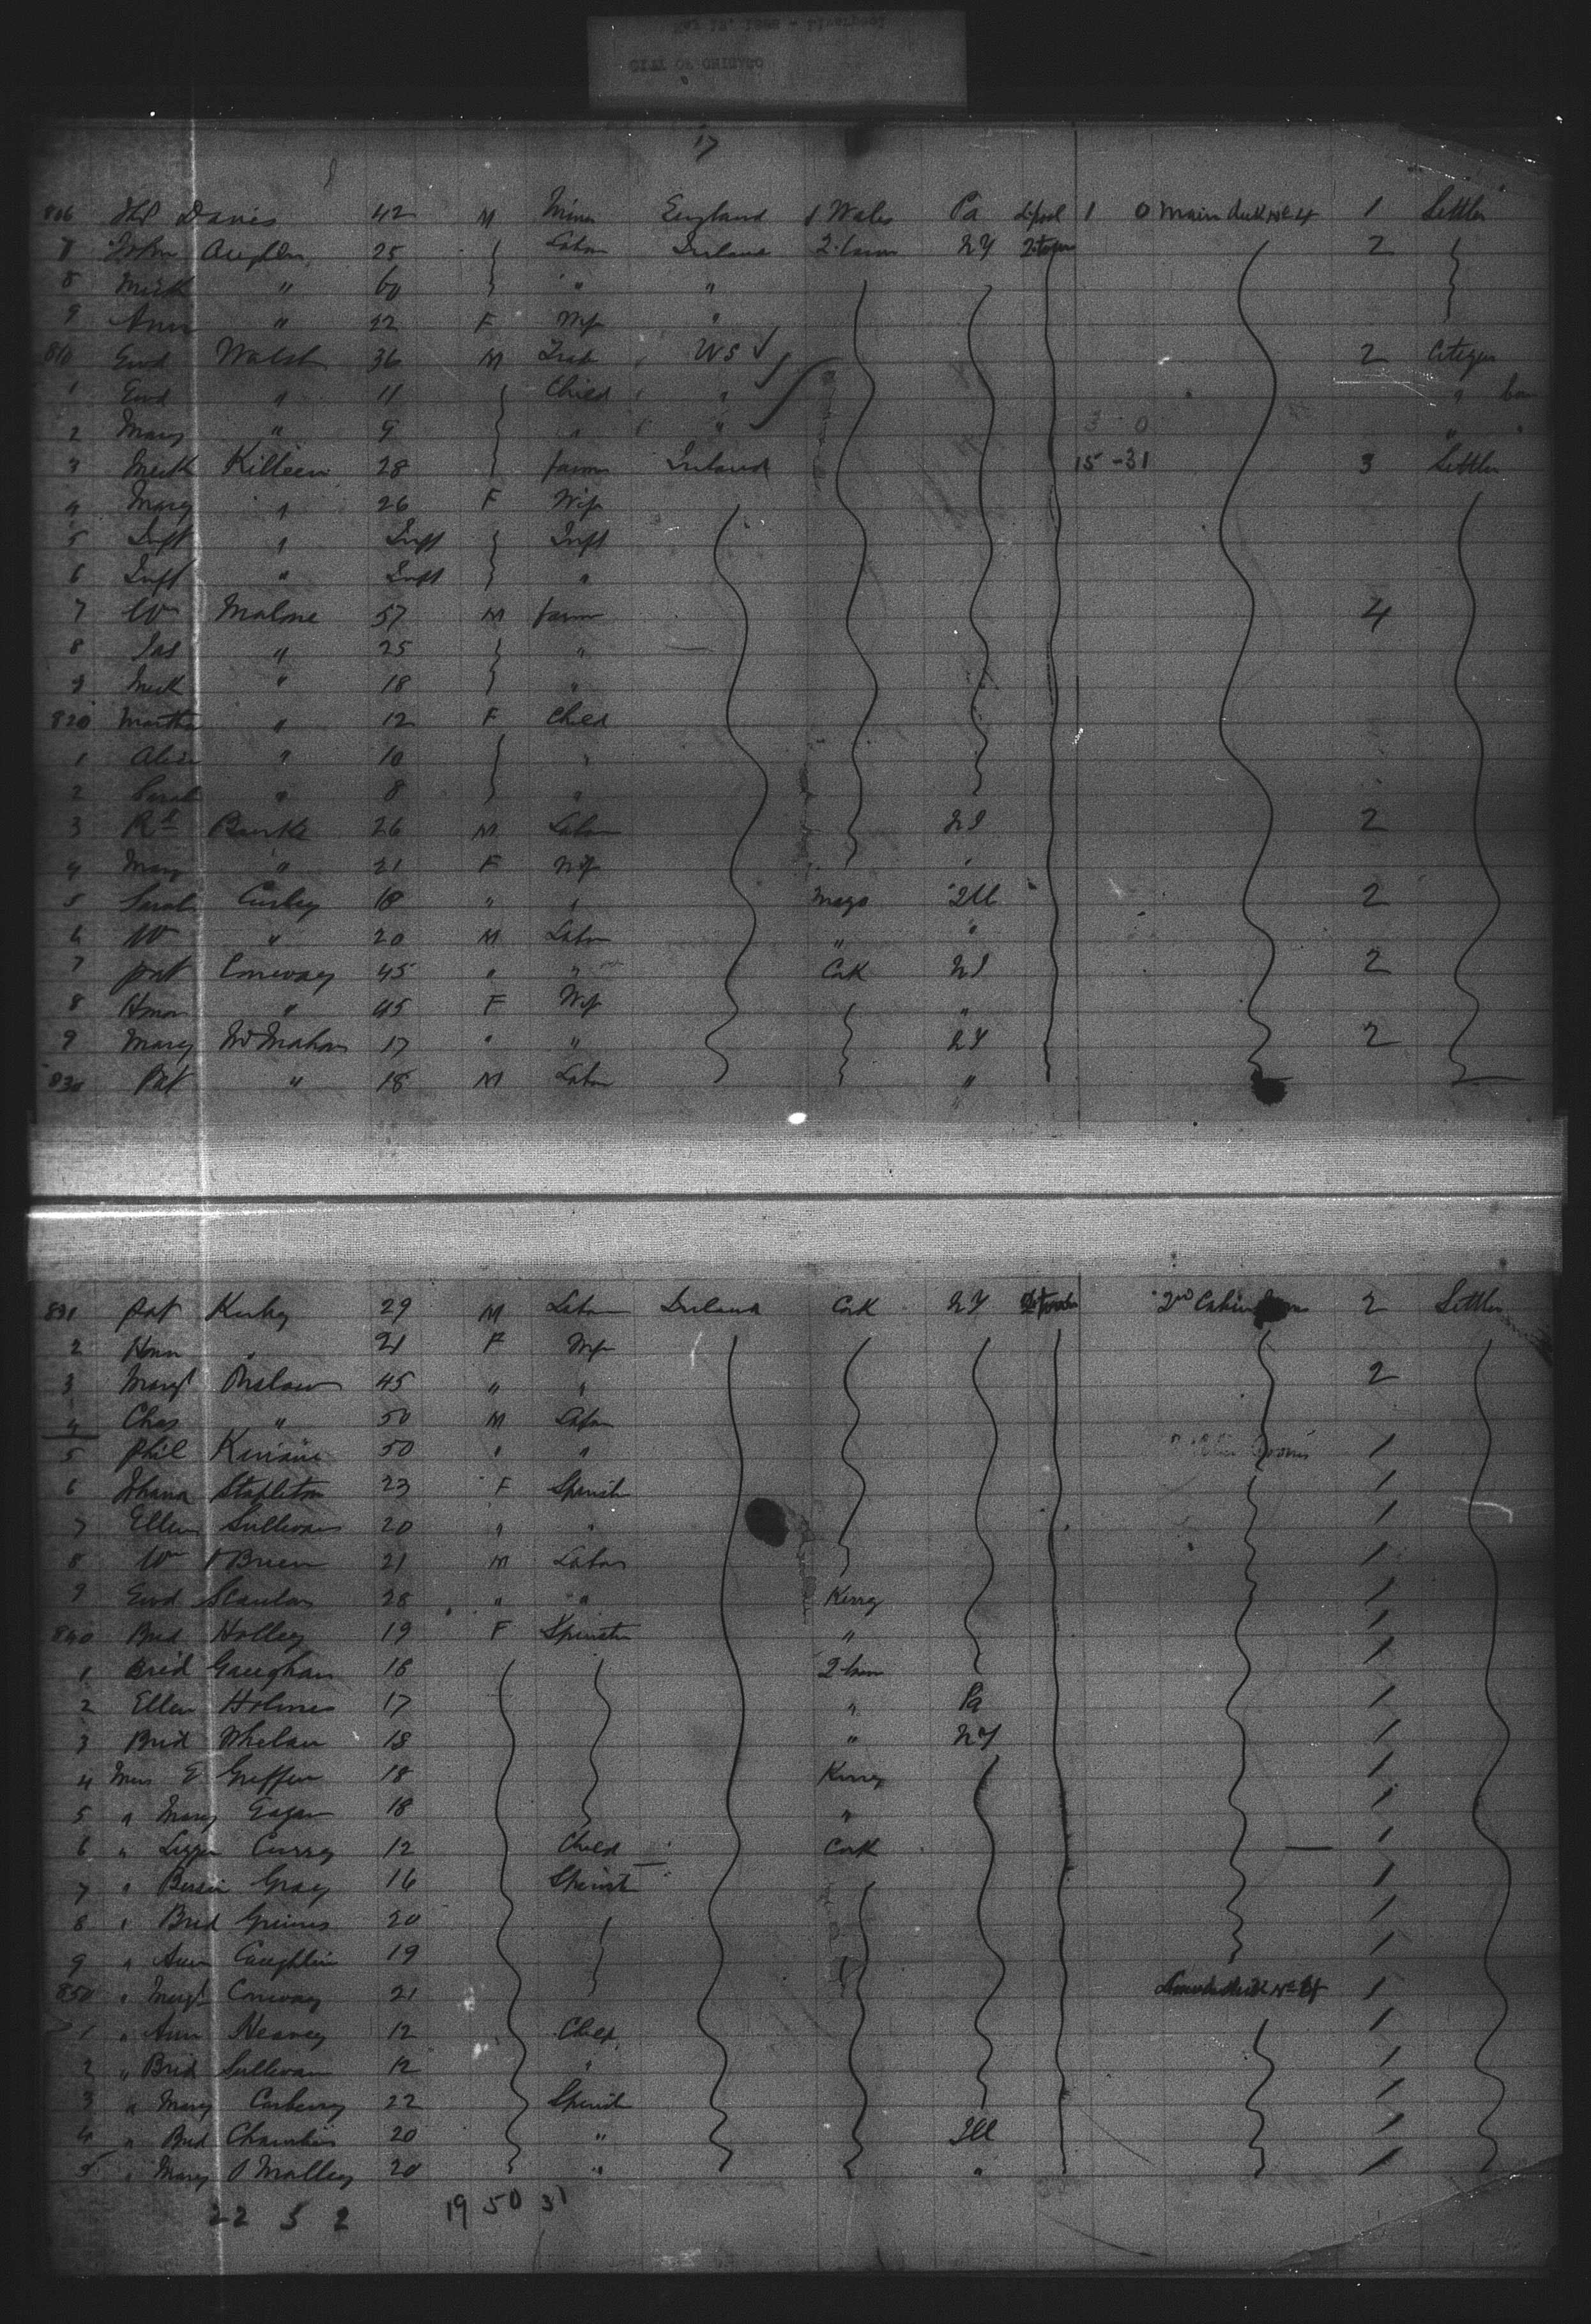 CITY OF CHICAGO
17
806 Davis 42 M Miner England Wales Pa L'pool 1 0 Main deck No 4 1 Settler
7 John 25 Labor Ireland NY 2
8 Mick " 60 " "
9 Ann " 22 F Wife "
810 Ewd Walsh 36 M US 2 Citizen
1 Ewd " 11 Child "
2 Mary " 9 " " 3 0 "
3 Mick Killeen 28 farm Ireland 15 - 31 3 Settler
4 Mary " 26 F Wife
5 Inft " Inft Inft
6 Inft " Inft "
7 Wm Malone 57 M farm 4
8 Jas " 25 "
9 Mick " 18 "
820 Martha " 12 F Child
1 Alice " 10 "
2 Sarah " 8 "
3 Rd Burke 26 M Labor 2
4 Mary " 21 F Wife "
5 Sarah 18 " " Mayo Ill 2
6 W " 20 M Labor " "
7 Pat Conway 45 " " Cork 2
8 Honor " 45 F Wife "
9 Mary McMahon 17 " " NY 2
830 Pat " 18 M Labor "
831 Pat Kirby 29 M Labor Ireland Cork NY 2nd Cabin 2 Settler
2 Honor " 21 F Wife
3 Margt 45 " " 2
4 Chas " 50 M Labor
5 Phil 50 " " 1
6 Johana Stapleton 23 F Spinster 1
7 Ellen Sullivan 20 " " 1
8 Wm O Brien 21 M Labor 1
9 Ewd Scanlon 28 " " Kerry 1
840 Brid Holley 19 F Spinster " 1
1 Brid Gaughan 18 1
2 Ellen Holmes 17 " Pa 1
3 Brid Whelan 18 " NY 1
4 Miss E Griffin 18 Kerry 1
5 " Mary Eagan 18 " 1
6 " Lizzie Curry 12 Child Cork 1
7 " Bessie Gray 16 Spinster 1
8 " Brid Grimes 20 1
9 " Ann Coughlin 19 1
850 " Margt Conway 21 1
1 " Ann Heavey 12 Child 1
2 " Brid Sullivan 12 " 1
3 " Mary Carberry 22 Spinster 1
4 " Brid 20 " Ill 1
5 " Mary O Malley 20 " " 1
22 5 2 19 50 31